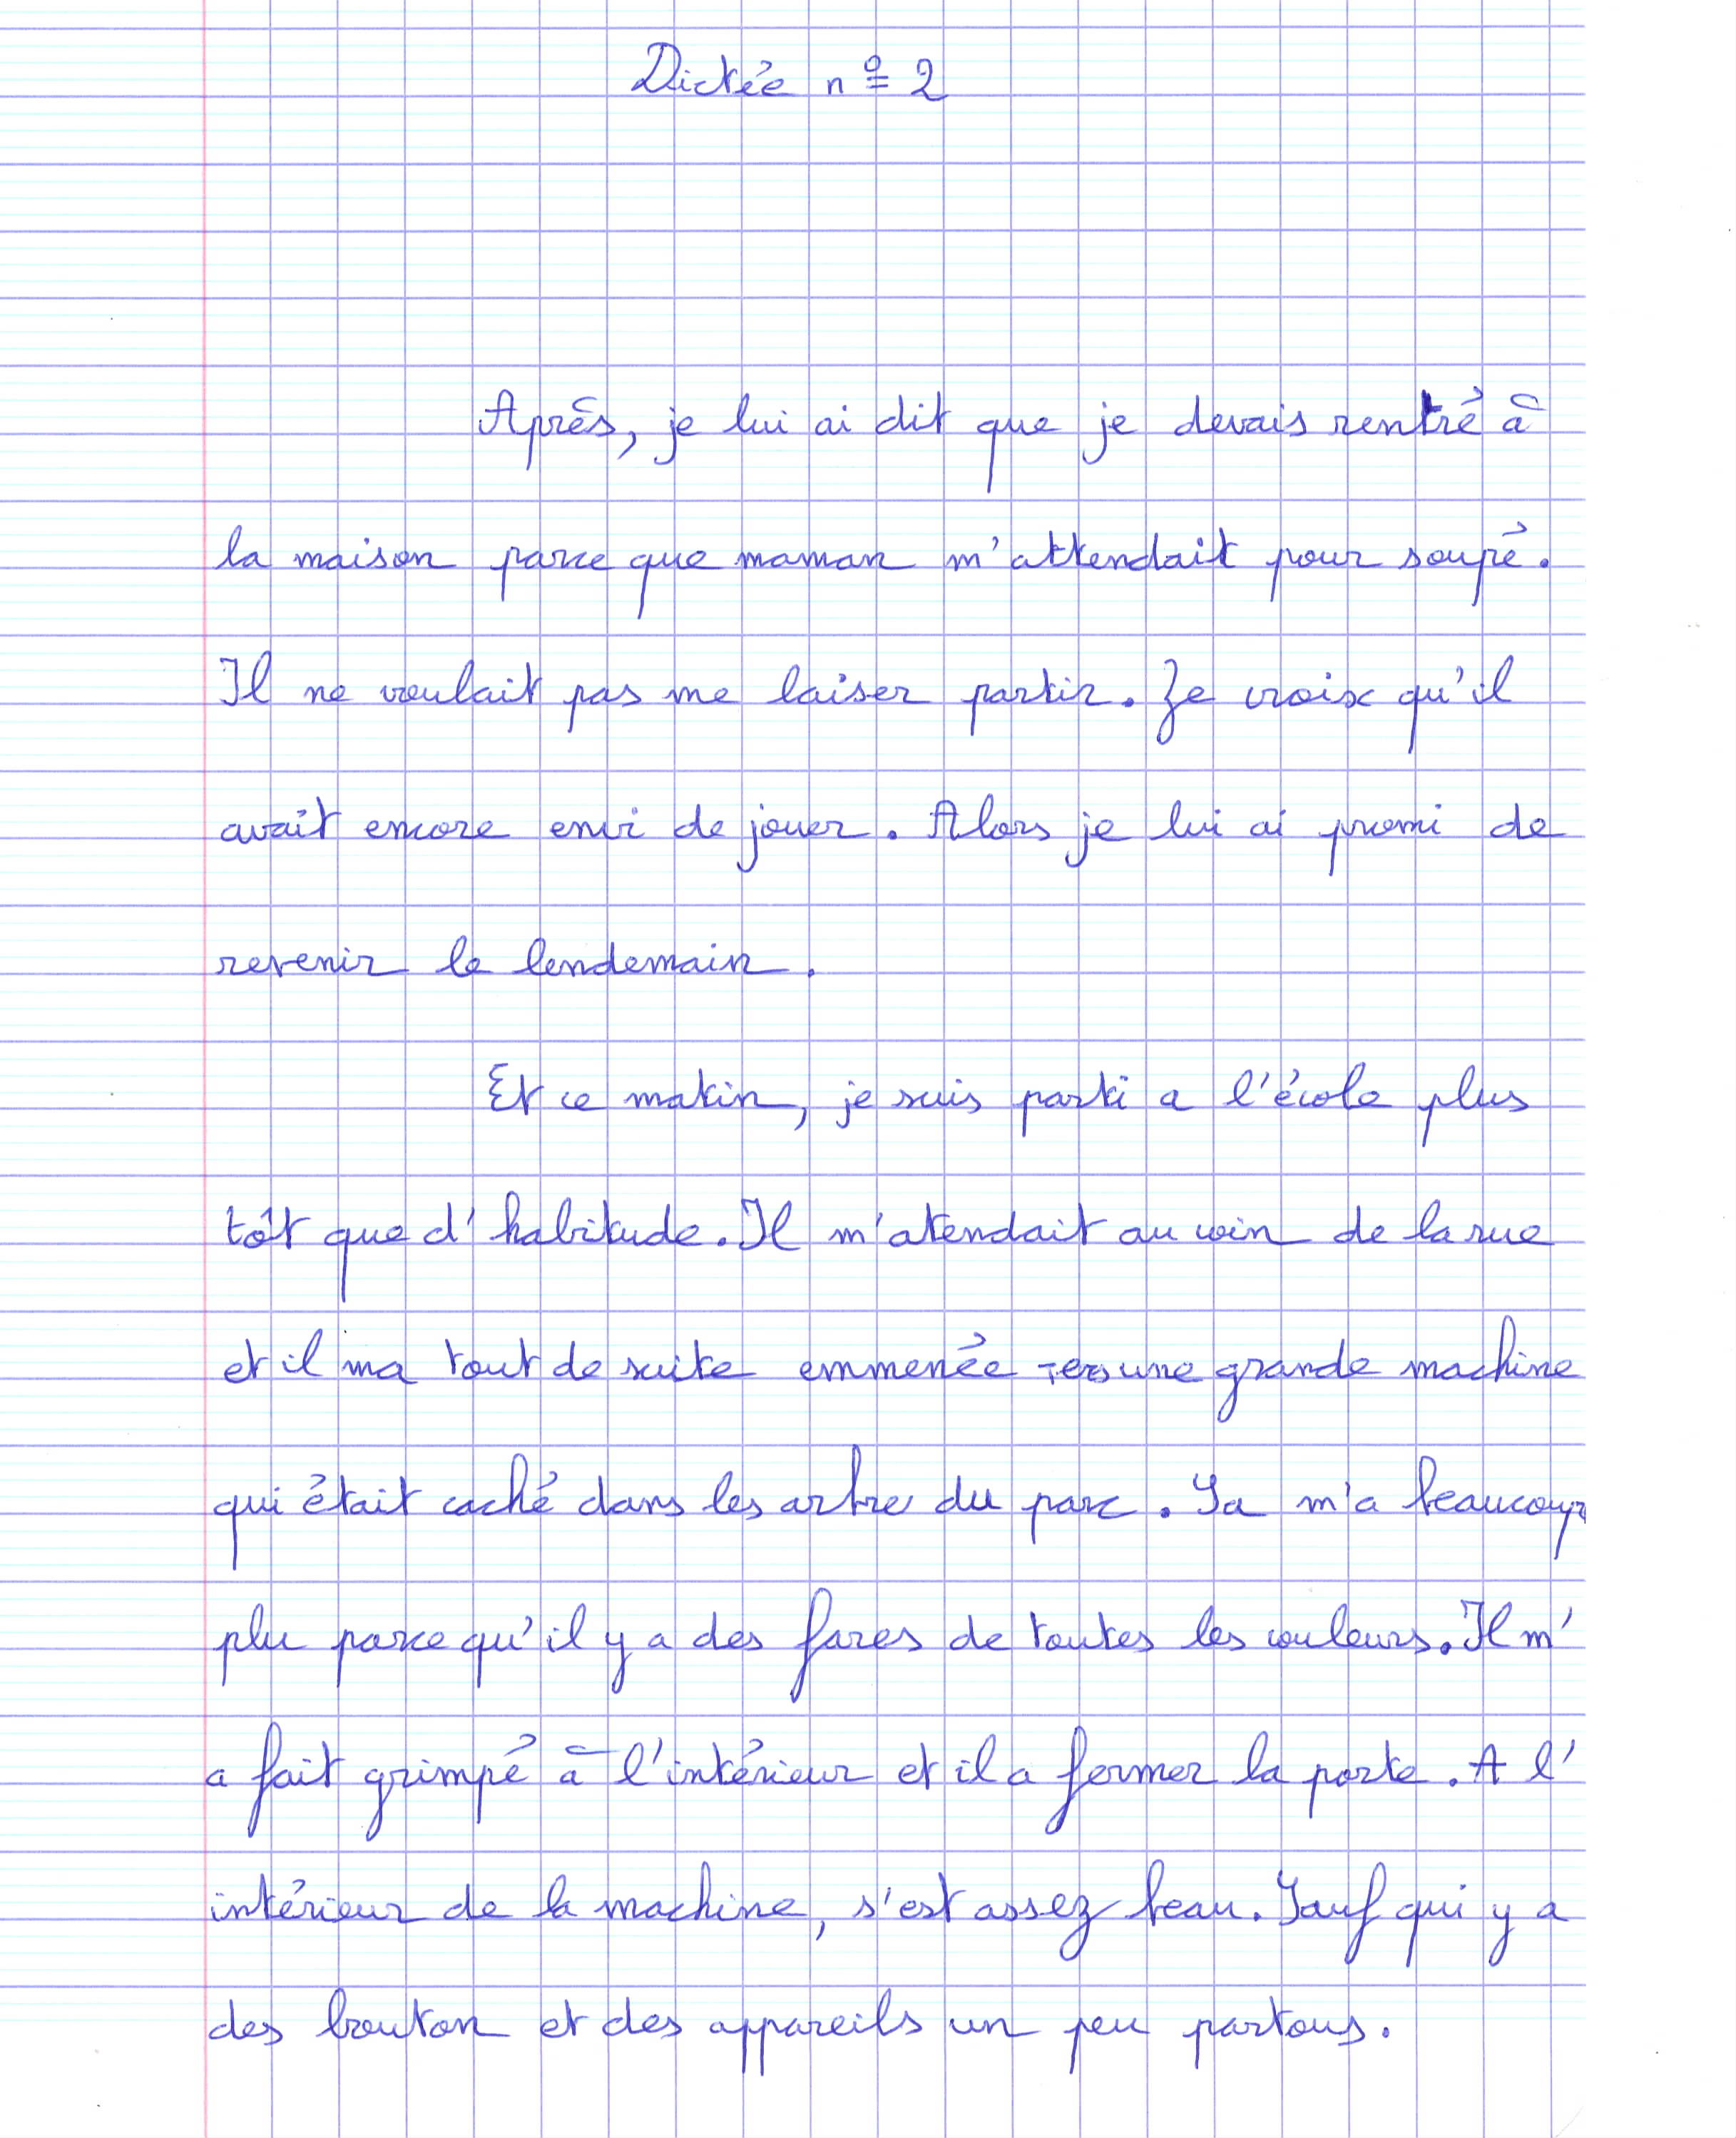 Dictée nº 2
Après, je lui ai dit que je devais rentré à
la maison parce que maman m'attendait pour soupé.
Il ne voulait pas me laiser partir. Je croix qu'il
avait encore envi de jouer. Alors je lui ai promi de
revenir le lendemain.
Et ce matin, je suis parti a l'école plus
tôt que d'habitude. Il m'atendait au coin de la rue
et il ma tout de suite emmenée vers une grande machine
qui était caché dans les arbre du parc. Sa m'a beaucoup
plu parce qu'il y a des fares de toutes les couleurs. Il m'
a fait grimpé à l'intérieur et il a fermer la porte. A l'
intérieur de la machine, s'est assez beau. Sauf qui y a
des bouton et des appareils un peu partous.